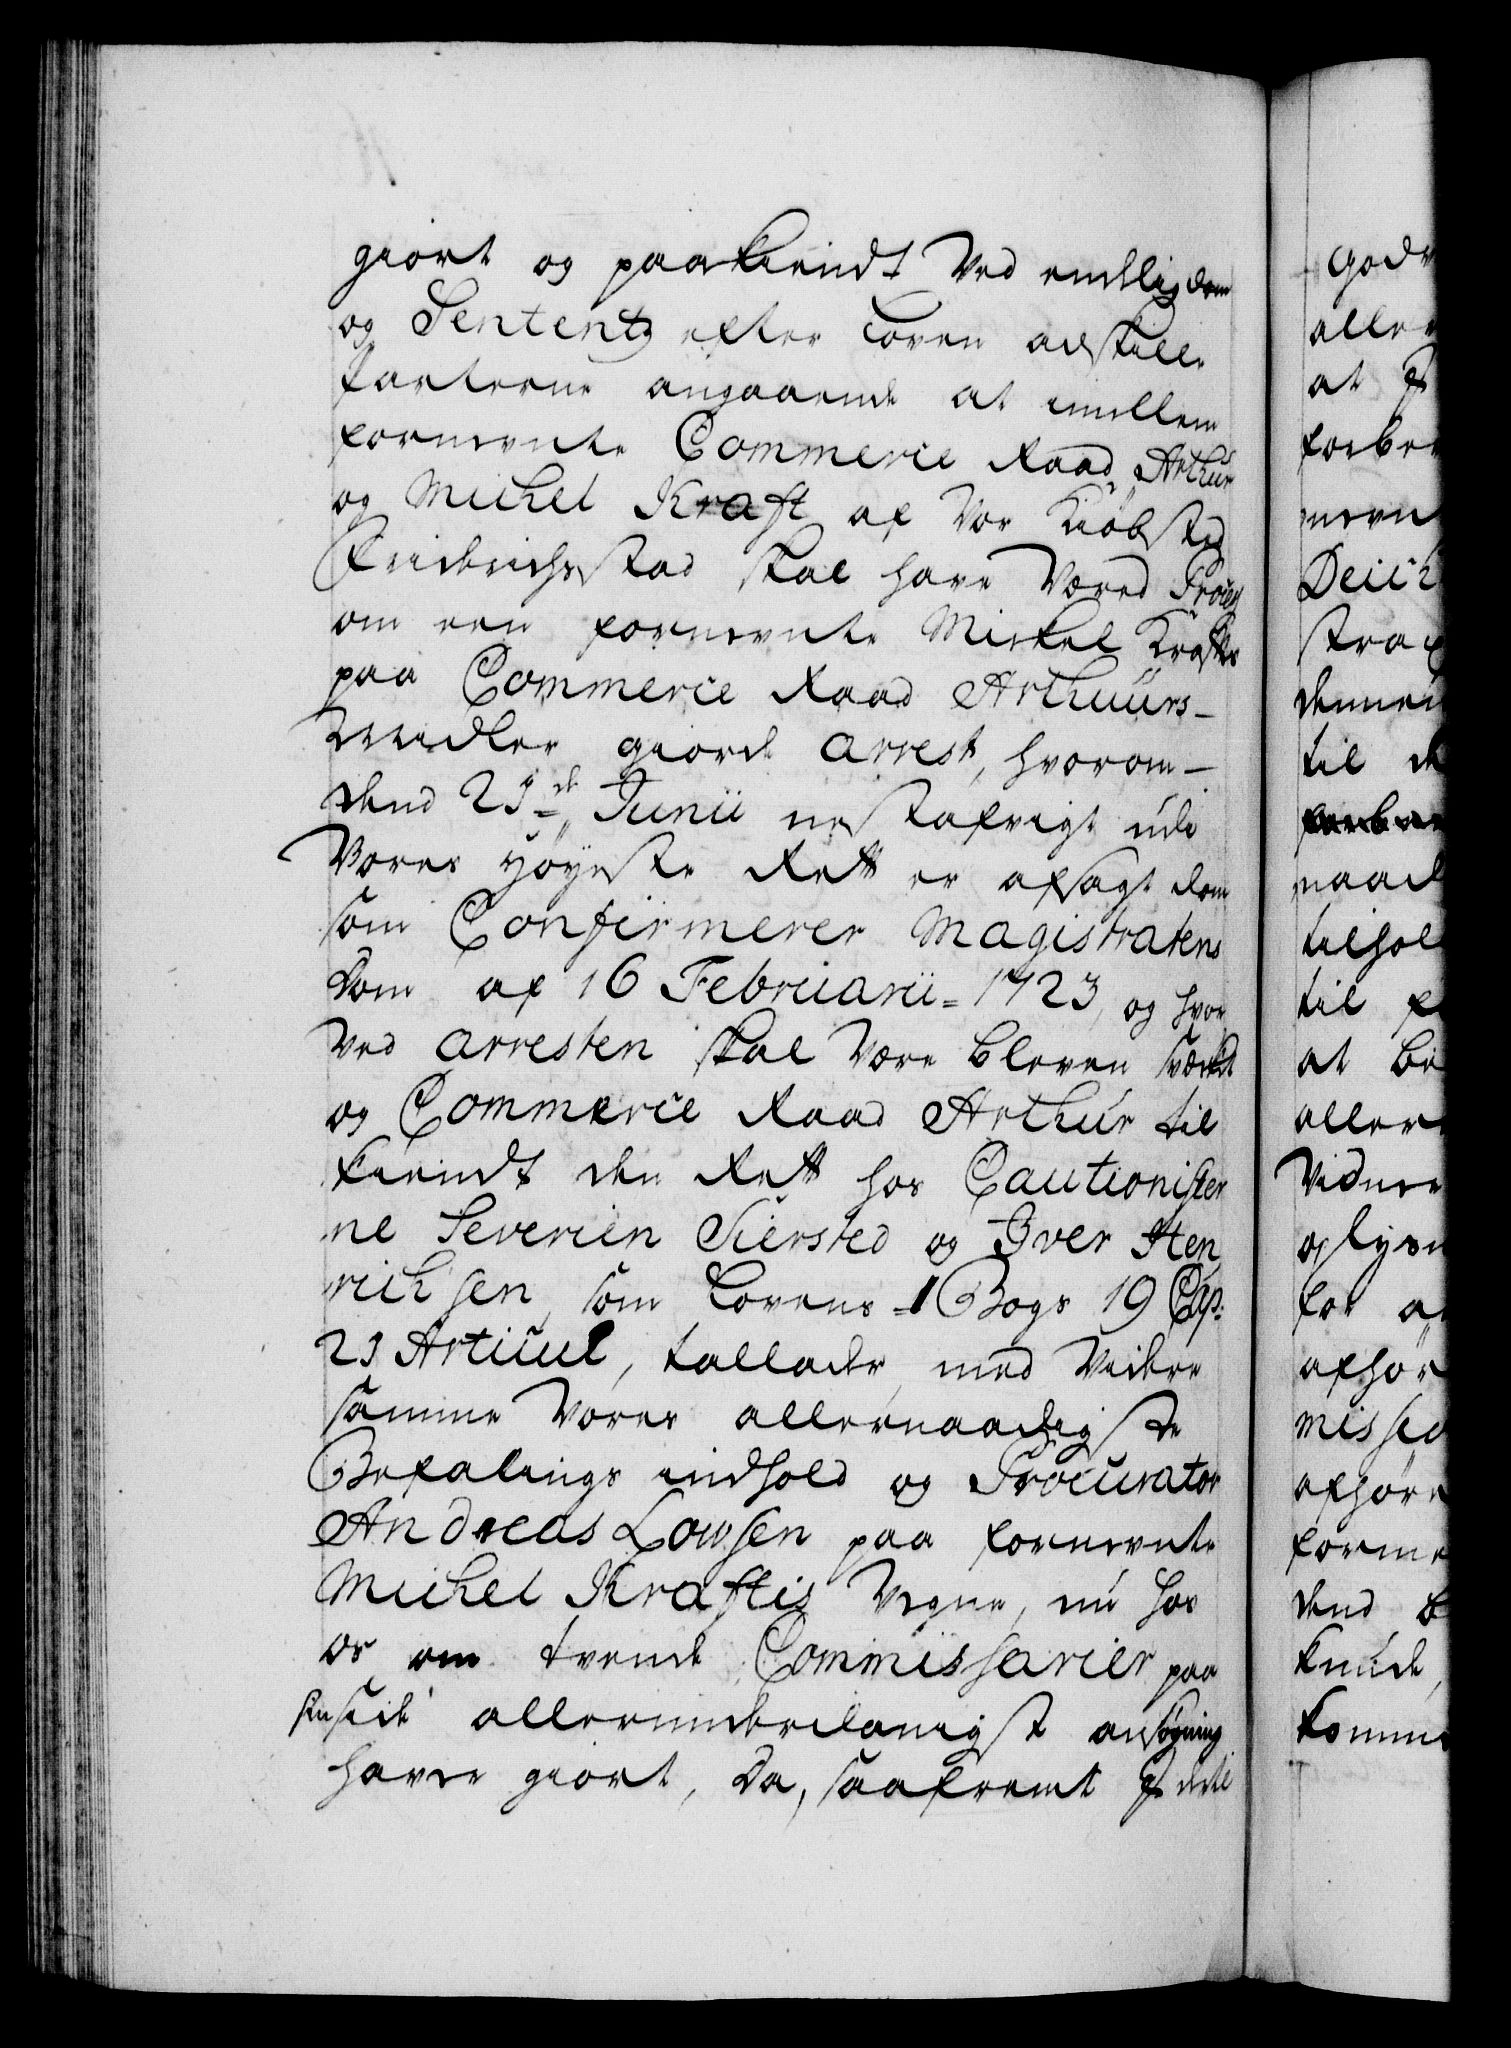 giort og paakiendt Ved endelig dom
og Sententz efter Loven adskille
Parterne angaaende at imellem
fornevnte Commerce Raad Arthur
og Michel Kraft af Vor Kiøbsted
Friderichsstad skal have Væred Proces
om een fornevnte Mickel Krafts
paa Commerce Raad Arthuurs
Midler giorde arrest, hvorom
dend 21de Junii nestafvigt udi
Vores Høyeste Rett er afsagt dom
som Confirmerer Magistratens
dom af 16 Februarii 1723, og hvor
Ved arresten skal Være bleven
og Commerce Raad Arthur til
kiendt den Rett hos Cautionister
ne Severien Siersted og Iver Hen
richsen, som Lovens 1 Bogs 19 Cap:
21 Articul, tallader, med Videre
samme Vores allernaadigste
Befalings indhold og Procurator
Andreas Lowsen paa fornevnte
Michel Kraftis Vegne, nu hos
os om tvende Commissarier paa
sin side allerunderdanigst ansøgning
haver giort, da, saafremt I det
Godv
aller
at I
forber
nevn
Deich
strax
dennem
til de
naad
tilhol
til
at be
aller
Vidner
oplysn
for a
afhør
missio
afhøre
forme
dend b
kunde,
komme